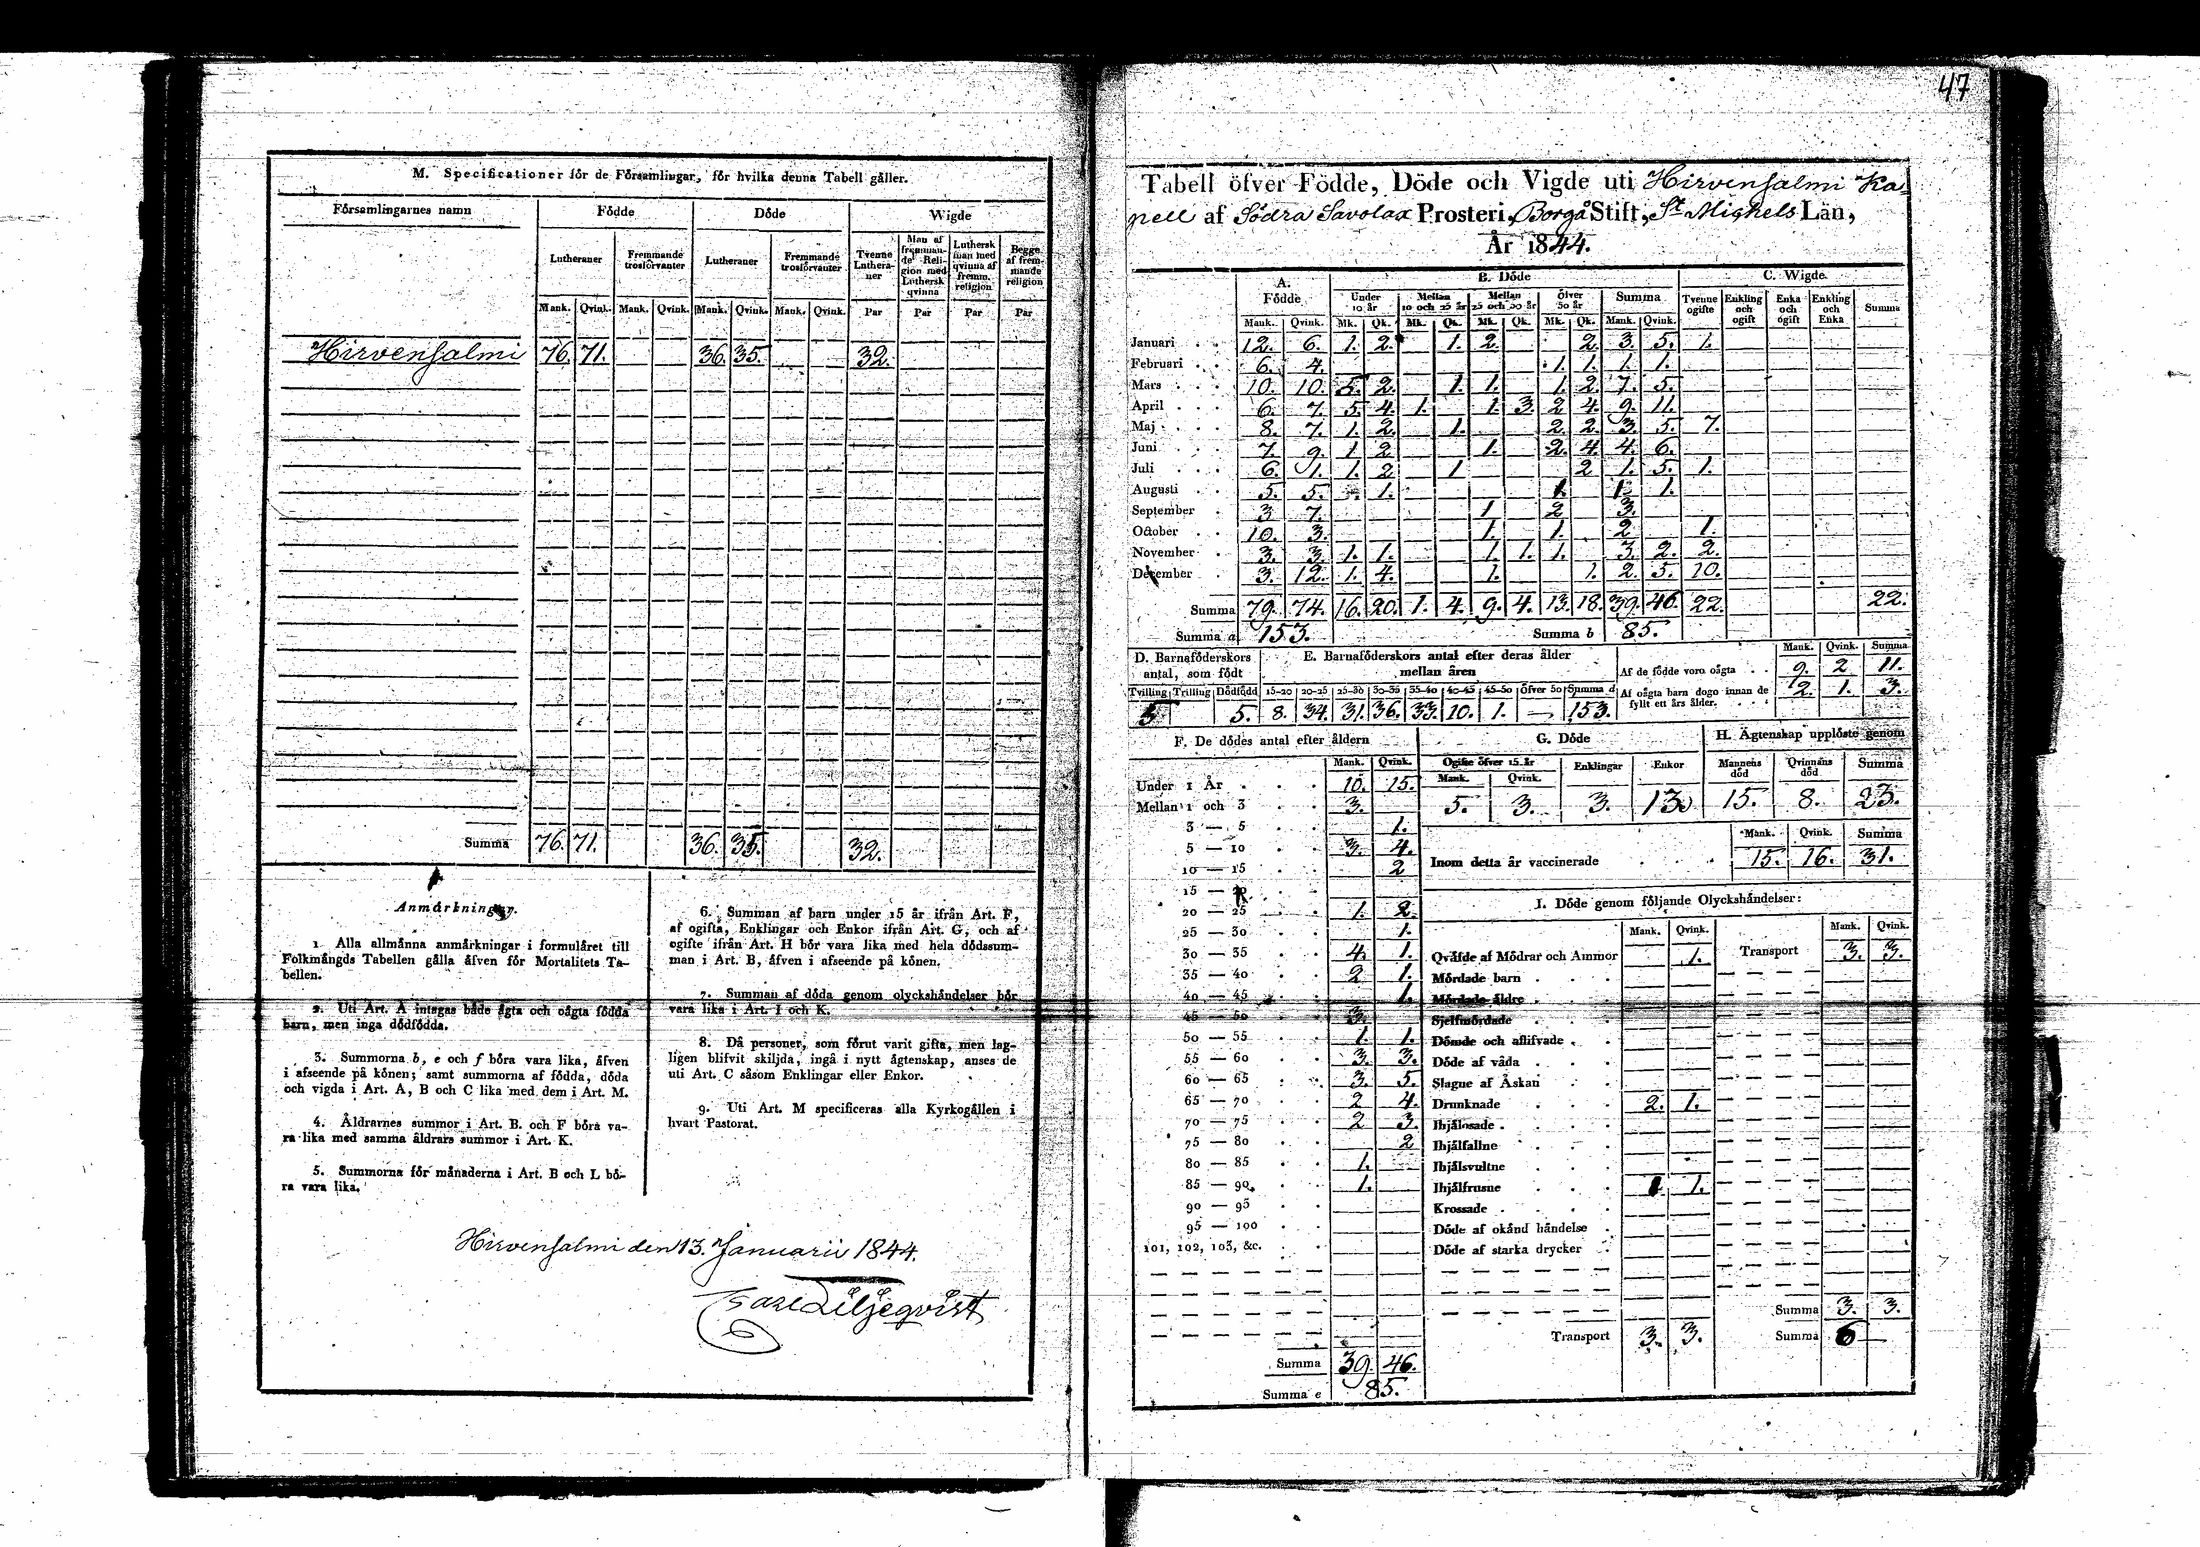 47
M. Specificationer för de Församlingar, för hvilka denna Tabell gäller.
Församlingarnes namn Födde Döde Wigde
Lutheraner Fremmande trosförvanter Lutheraner Fremmande trosförvanter Tvenne Lutheraner Man af fremmande Religion med Luthersk qvinna Luthersk man med qvinna af fremm. religion Begge af fremmande religion
Mank. Qvink. Mank. Qvink. Mank. Qvink. Mank. Qvink. Par Par Par Par
Hirvensalmi 76. 71. 36. 35. 32.
Summa 76. 71. 36. 35. 32.
Anmärkningar.
1. Alla allmänna anmärkningar i formuläret till
Folkmängds Tabellen gälla äfven för Mortalitets Ta-
bellen.
2. Uti Art. A intagas både ägta och oägta födda
barn, men inga dödfödda.
3. Summorna b, e och f böra vara lika, äfven
i afseende på könen; samt summorna af födda, döda
och vigda i Art. A, B och C lika med dem i Art. M.
4. Åldrarnes summor i Art. B. och F böra va-
ra lika med samma åldrars summor i Art. K.
5. Summorna för månaderna i Art. B och L bö-
ra vara lika.
6. Summan af barn under 15 år ifrån Art. F,
af ogifta, Enklingar och Enkor ifrån Art. G, och af
ogifte ifrån Art. H bör vara lika med hela dödssum-
man i Art. B, äfven i afseende på könen.
7. Summan af döda genom olyckshändelser bör
vara lika i Art. I och K.
8. Då personer, som förut varit gifta, men lag-
ligen blifvit skiljda, ingå i nytt ägtenskap, anses de
uti Art. C såsom Enklingar eller Enkor.
9. Uti Art. M specificeras alla Kyrkogällen i
hvart Pastorat.
Hirvensalmi den 13. Januarii 1844.
Carl Liljeqvist
Tabell öfver Födde, Döde och Vigde uti Hirvensalmi Ka-
pell af Södra Savolax Prosteri, Borgå Stift, St. Michels Län,
År 1844.
A. Födde B. Döde C. Wigde
Under 10 år Mellan 10 och 25 år Mellan 25 och 50 år Öfver 50 år Summa Tvenne ogifte Enkling och ogift Enka och ogift Enkling och Enka Summa
Mank. Qvink. Mk. Qk. Mk. Qk. Mk. Qk. Mk. Qk. Mank. Qvink.
Januari 12. 6. 1. 2. 1. 2. 2. 3. 5. 1.
Februari 6. 4. 1. 1. 1. 1.
Mars 10. 10. 5. 2. 1. 1. 1. 2. 7. 5.
April 6. 7. 5. 4. 1. 1. 3. 2 4. 9. 11.
Maj 8. 7. 1. 2. 1. 2. 2. 3. 5. 7.
Juni 7. 9. 1. 2 1. 2. 4. 4. 6.
Juli 6. 1. 1. 2. 1 2 1. 5. 1.
Augusti 5. 5. 1. 1. 1 1.
September 3 7. 1 2 3.
October 10. 3. 1. 1. 2 1.
November 3. 3. 1. 1. 1. 1. 1. 3. 2. 2.
December 3. 12. 1. 4. 1. 1. 2. 5. 10.
Summa 79. 74. 16. 20. 1. 4. 9. 4. 13. 18. 39. 46. 22. 22.
Summa a 153. Summa b 85.
D. Barnaföderskors antal, som födt
Tvilling Trilling Dödfödd
5 5.
E. Barnaföderskors antal efter deras ålder mellan åren
15-20 20-25 25-30 30-35 35-40 40-45 45-50 Öfver 50 Summa d
8. 34. 31. 36. 33. 10. 1. — 153.
Mank. Qvink. Summa
Af de födde voro oägta 9. 2 11.
Af oägta barn dogo innan de fyllt ett års ålder. 2. 1. 3.
F. De dödes antal efter åldern
Mank. Qvink.
Under 1 År 10. 15.
Mellan 1 och 3 3.
3 — 5 1.
5 — 10 3. 4.
10 — 15 2
15 — 20
20 — 25 1. 2.
25 — 30 1.
30 — 35 4. 1.
35 — 40 2 1.
40 — 45 1.
45 — 50 3.
50 — 55 1. 1.
55 — 60 3. 3.
60 — 65 3. 5.
65 — 70 2 4.
70 — 75 2 3.
75 — 80 2
80 — 85 1.
85 — 90 1.
90 — 95
95 — 100
101, 102, 103, &c.
Summa 39. 46.
Summa e 85.
G. Döde
Ogifte öfver 15 år Enklingar Enkor
Mank. Qvink.
5. 3. 3. 13
H. Ägtenskap upplöste genom
Mannens död Qvinnans död Summa
15. 8. 23.
Mank. Qvink. Summa
Inom detta år vaccinerade 15. 16. 31.
I. Döde genom följande Olyckshändelser:
Mank. Qvink. Mank. Qvink.
Qväfde af Mödrar och Ammor 1. Transport 3. 3.
Mördade barn
Mördade äldre
Sjelfmördade
Dömde och aflifvade
Döde af våda
Slagne af Åskan
Drunknade 2. 1.
Ihjälosade
Ihjälfallne
Ihjälsvultne
Ihjälfrusne 1 1.
Krossade
Döde af okänd händelse
Döde af starka drycker
Summa 3. 3.
Transport 3. 3. Summa 6 —